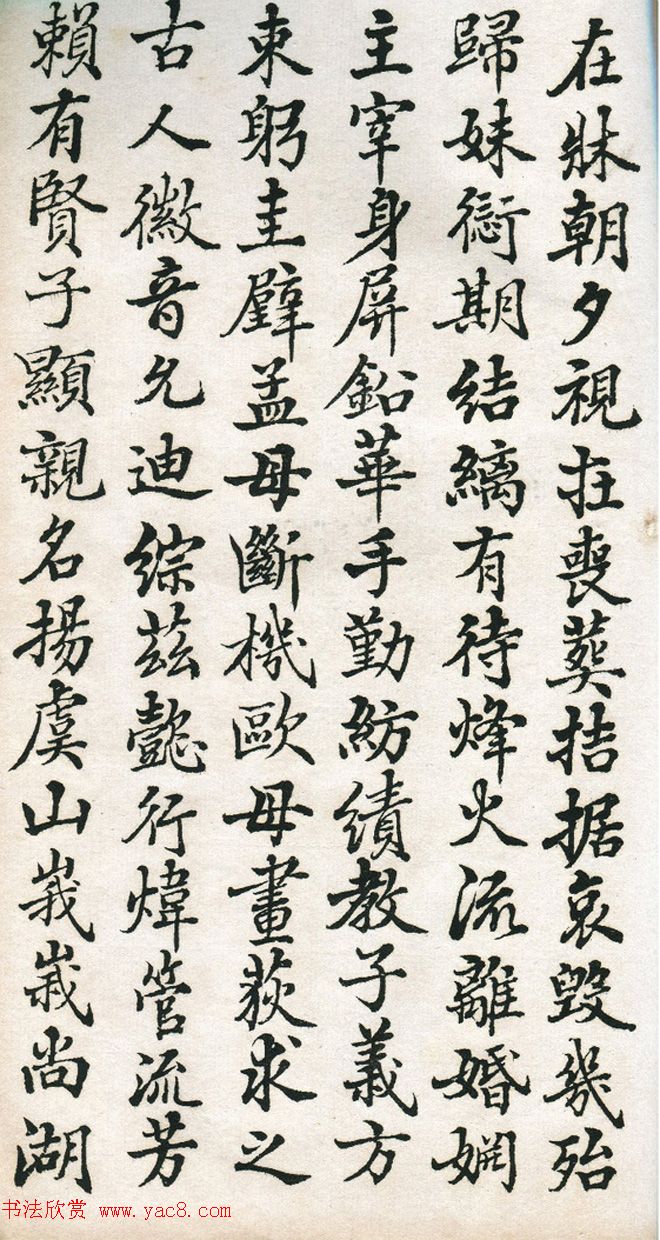 在牀朝夕視在喪葬拮据哀毀幾殆
歸妹愆期結縭有待烽火流離婚嫻
主宰身屏鉛華手勤紡績教子義方
束躬圭璧孟母斷機歐母畫荻求之
古人徽音允迪綜茲懿行煒管流芳
賴有賢子顯親名揚虞山峩峩尚湖
书法欣赏 www.yac8.com